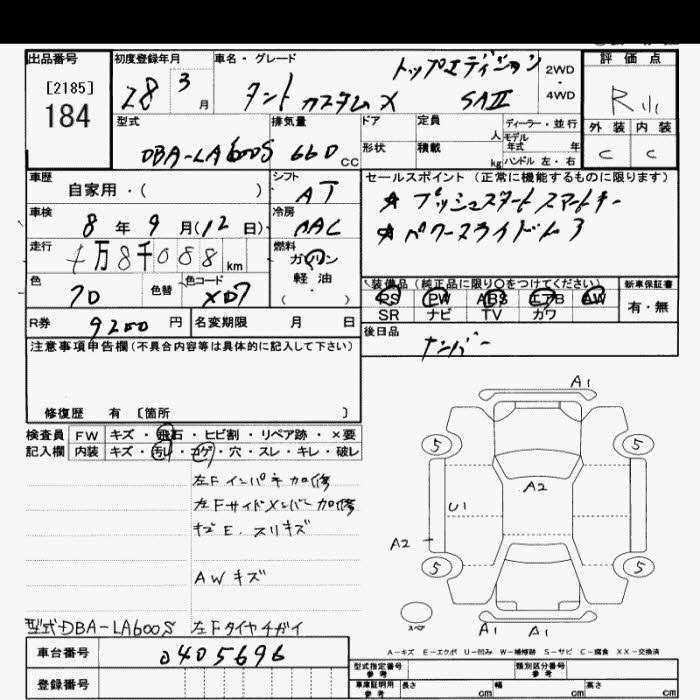 出品番号 初度登録年月 車名・グレード 評価点
[2185]
184
28 3 月
トップエディション
タント カスタム X SAⅡ
2WD
・
4WD
R小
型式 排気量 ドア 定員 ディーラー・並行
DBA-LA600S 660 CC
形状 積載 人 kg モデル年式 年 ハンドル 左・右
外装 内装
C C
車歴 自家用・( )
シフト AT
セールスポイント (正常に機能するものに限ります)
☆ プッシュスタート スマートキー
☆ パワースライドドア
車検 8 年 9 月(12 日)
冷房 AAC
走行 万 8千088 km
燃料 ガソリン
軽油
( )
色 色替 色コード
XD7
装備品 (純正品に限り〇をつけてください) 新車保証書
PS PW ABS エアB AW
SR ナビ TV カワ
有・無
R券 9200 円 名変期限 月 日
後日品 ナンバー
注意事項申告欄(不具合内容等は具体的に記入して下さい)
修復歴 有 〔箇所 〕
検査員 FW キズ・飛石・ヒビ割・リペア跡・×要
記入欄 内装 キズ・汚レ・コゲ・穴・スレ・キレ・破レ
左Fインパネ加修
左Fサイドメンバー加修
キズE. スリキズ
AWキズ
型式DBA-LA600S 左Fタイヤチガイ
A1
5 5
A2
U1
A2
5 5
スペア
A1 A1
A-キズ E-エクボ U-凹み W-補修跡 S-サビ C-腐食 XX-交換済
車台番号 0405696
登録番号
型式指定番号 参考 類別区分番号 参考
車庫証明用 参考 長さ cm 幅 cm 高さ cm